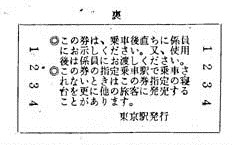 裏
◎この券は、乗車後直ちに係員
にお示しください。又、使用
後は係員にお渡しください。
◎この券の指定乗車駅で乗車さ
れないときはこの券指定の寝
台を更に他の旅客に発売する
ことがあります。
東京駅発行
1 2 3 4
1 2 3 4